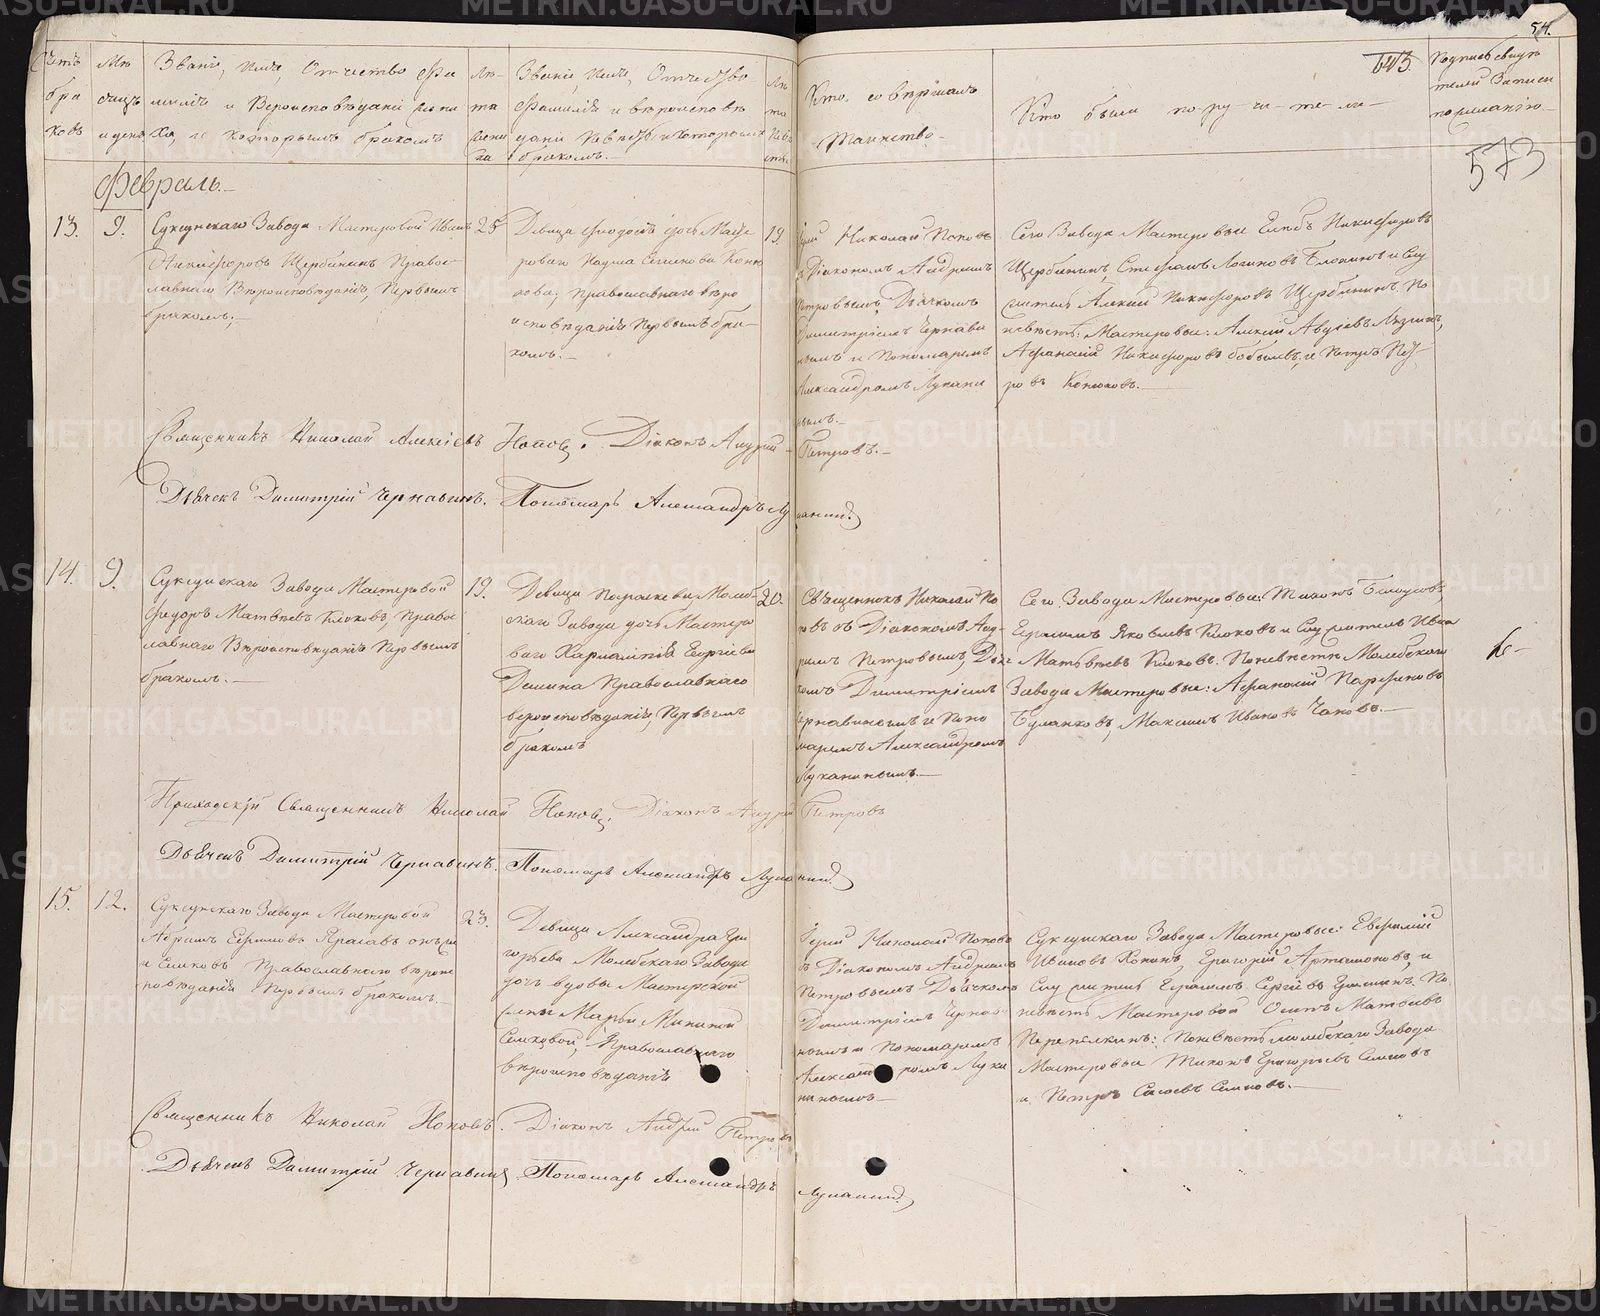 54.
643.
573
Счетъ браковъ
Мѣсяцъ и день
Званіе, Имя, Отчество Фамилія и Вѣроисповѣданіе жениха, и которымъ бракомъ
Лѣта жениха
Званіе, Имя, Отчество Фамилія и вѣроисповѣданіе Невѣсты и которымъ бракомъ.
Лѣта Невѣсты
Кто совершалъ Таинство.
Кто были поручители
Подпись свидѣтелей Записи по желанію.
Февраль.
13.
9.
Суксунскаго Завода Мастеровой Иванъ
Никифоровъ Щербининъ Православнаго
Вѣроисповѣданія, Первымъ
бракомъ.
25
Девица Феодосія дочь Мастероваго
Наума
Конюхова, Православнаго вѣроисповѣданія
Первымъ бракомъ.
19.
Іерей Николай Поповъ
съ Діакономъ Андреемъ
Петровымъ, Дьячкомъ
Димитріемъ Чернавинымъ
и Пономаремъ
Александромъ Луканинымъ.
Сего Завода Мастеровые Глебъ Никифоровъ
Щербининъ, Стефанъ Логиновъ
Алексій Никифоровъ Щербининъ. По
невѣсте: Мастеровые: Алексій
Афанасій Никифоровъ Бобылевъ, и Петръ Петровъ
Конюховъ.
Священникъ Николай Алексіевъ Поповъ. Діаконъ Андрей Петровъ.
Дьячекъ Димитрій Чернавинъ. Пономарь Александръ Луканинъ
14.
9.
Суксунскаго Завода Мастеровой
Федоръ Матвѣевъ Клюковъ, Православнаго
Вѣроисповѣданія Первымъ
бракомъ.
19.
Девица Параскева Молебскаго
Завода дочь Мастероваго
Харлампія Георгіева
Демина Православнаго
вѣроисповѣданія, Первымъ
бракомъ
20.
Священникъ Николай Поповъ
съ Діакономъ Андреемъ
Петровымъ, Дьячкомъ
Димитріемъ
Чернавинымъ и Пономаремъ
Александромъ
Луканинымъ.
Сего Завода Мастеровые: Тихонъ
Яковлевъ Клюковъ и Иванъ
Матвѣевъ Клюковъ. Поневѣсте Молебскаго
Завода Мастеровые: Афанасій Парфеновъ
Максимъ Ивановъ
Приходскій Священникъ Николай Поповъ. Діаконъ Андрей Петровъ
Дьячекъ Димитрій Чернавинъ. Пономарь Александръ Луканинъ.
15.
12.
Суксунскаго Завода Мастеровой
Абрамъ
и Семковъ Православнаго вѣроисповѣданія
Первымъ бракомъ.
23.
Девица Александра Григорьева
Молебскаго Завода
дочь вдовы Мастерской
жены Марьи Никитиной
Семковой, Православнаго
вѣроисповѣданія
Іерей Николай Поповъ
съ Діакономъ Андреемъ
Петровымъ Дьячкомъ
Димитріемъ Чернавинымъ
и Пономаремъ
Александромъ Луканинымъ
Суксунскаго Завода Мастеровые:
Ивановъ Григорій Артамоновъ, и
Сергіевъ По
невѣсте Мастеровой Осипъ Матвѣевъ
Перепелкинъ: Поневѣсте Молебскаго Завода
Мастеровые Тихонъ Григорьевъ Семковъ
и Петръ Семковъ.
Священникъ Николай Поповъ. Діаконъ Андрей Петровъ
Дьячекъ Димитрій Чернавинъ Пономарь Александръ Луканинъ.
METRIKI.GASO-URAL.RU